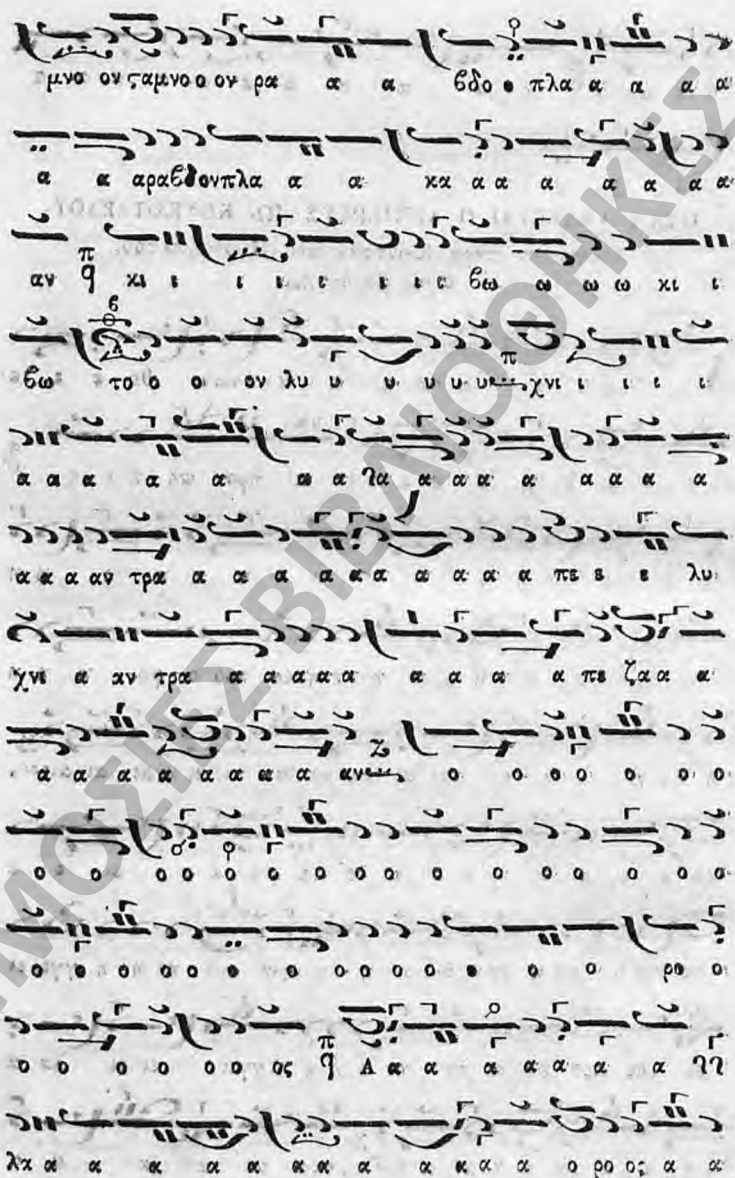 μνο ον ςαμνο ο ον ρα α α βδο ο πλα α α α α
α α αραβδονπλα α α κα α α α α α α α
αν π̣ q κι ι ι ι ι ι ι βω ω ω ω κι ι
βω το ο ο ον λυ υ υ υ υ υ χνι ι ι ι ι
α α α α α α α λα α α α α α α α α
α α α αν τρα α α α α α α α α α α πε ε ε λυ
χνι α αν τρα α α α α α α α α α πε ζα α α
α α α α α α α α αν ο ο ο ο ο ο ο
ο ο ο ο ο ο ο ο ο ο ο ο ο ο ο ο
ο ο ο ο ο ο ο ο ο ο ο ο ο ο ρο ο
ο ο ο ο ο ο ος π q Α α α α α α α α λλ
λα α α α α α α α α α α α α ο ρο ος α α
ΗΜΟΣΙΕΣ ΒΙΒΛΙΟΘΗΚΕΣ